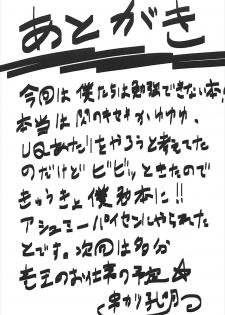 あとがき
今回は僕たちは勉強できない本!
本当は
のキセキかゆゆゆ、
あたりをやろうと考えてた
のだけどビビッときたので
きゅうきょ僕勉本に!!
アシュミーパイセンにやられたっ
とです。次回は多分
竜王のおしごとの予定☆
串かり孔明